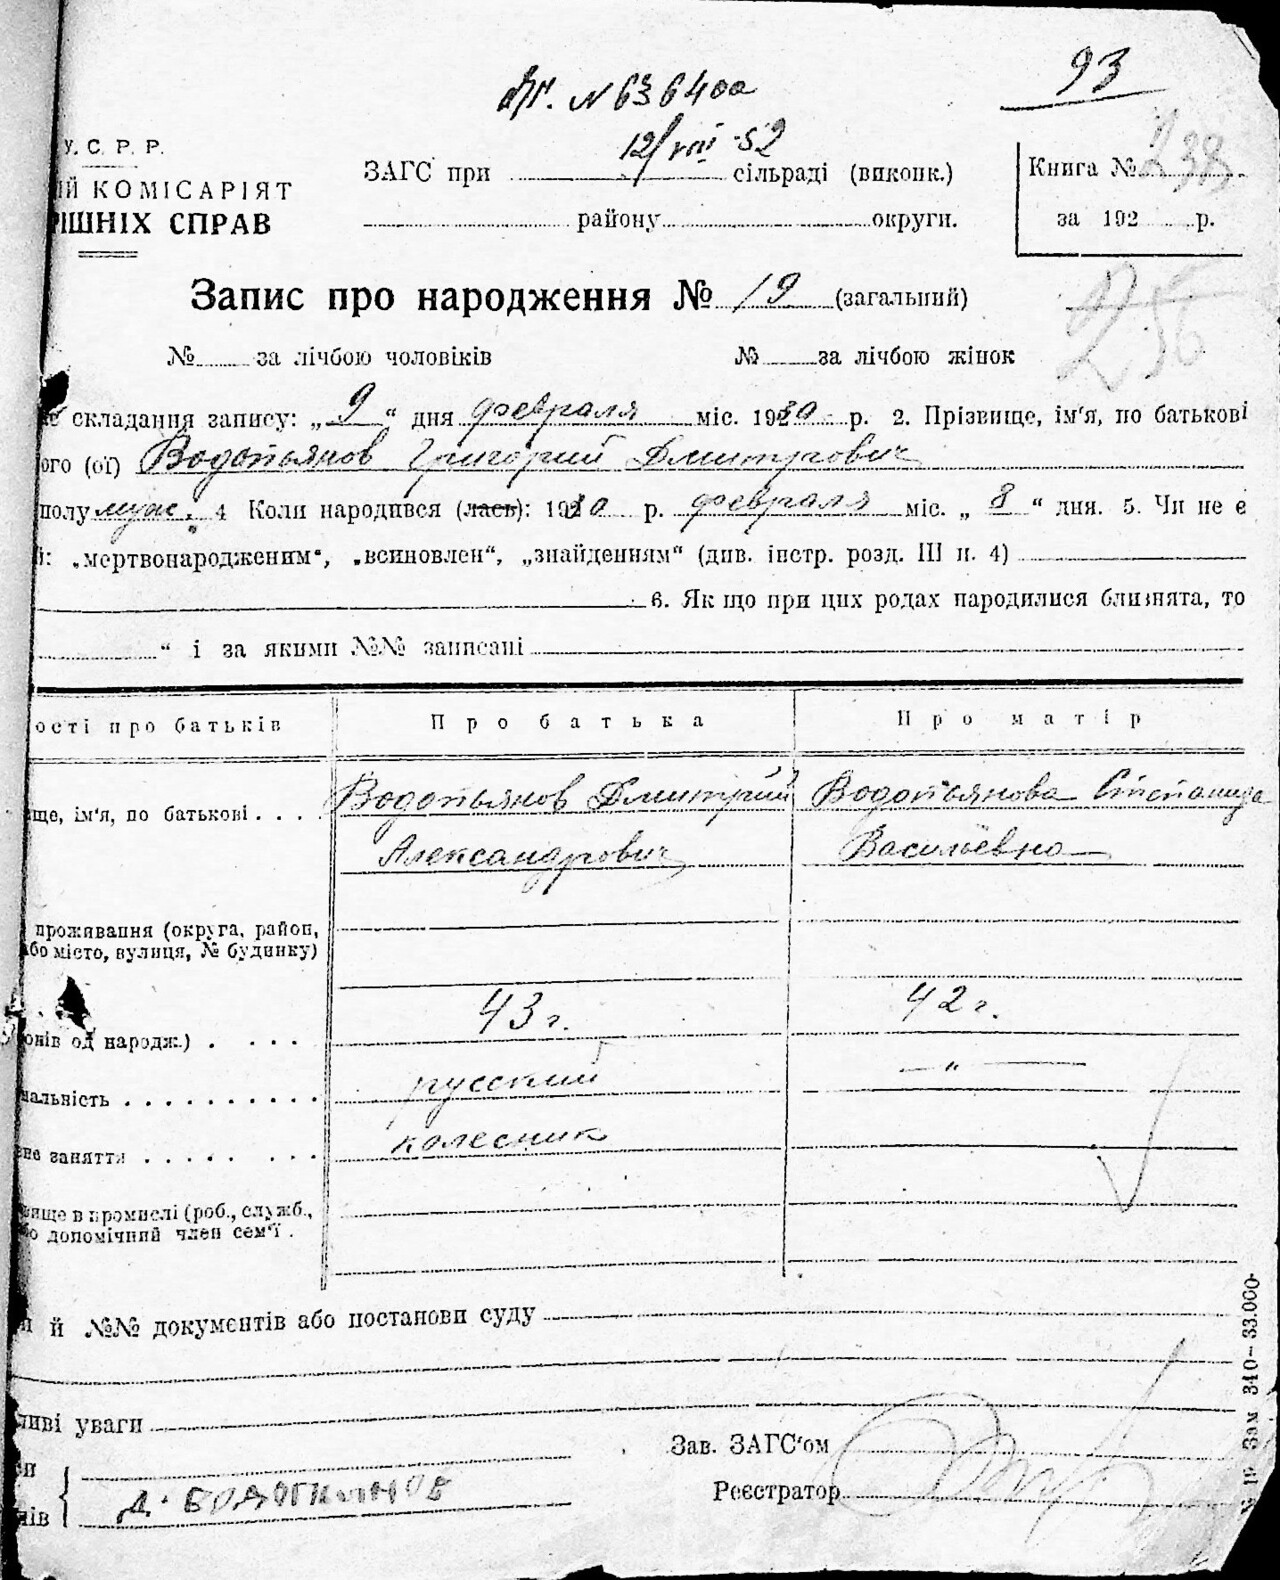 93
№ 636400
12/VIII 52
У. С. Р. Р.
ИЙ КОМІСАРІЯТ
РІШНІХ СПРАВ
ЗАГС при сільраді (виконк.)
району округи.
Книга № 238
за 192 р.
Запис про народження № 19 (загальний)
256
№ за лічбою чоловіків № за лічбою жінок
складання запису: „ 9 “ дня февраля міс. 1930 р. 2. Прізвище, ім'я, по батькові
ого (ої) Водопьянов Григорий Дмитрович
полу муж. 4 Коли народився (лась): 1930 р. февраля міс. „ 8 “ дня. 5. Чи не є
: „мертвонародженим“, „всиновлен“, „знайденням“ (див. інстр. розд. III п. 4)
6. Як що при цих родах народилися близнята, то
“ і за якими №№ записані
ості про батьків Про батька Про матір
ще, ім'я, по батькові . . . . Водопьянов Дмитрий Водопьянова Степанида
Александрович Васильевна
проживання (округа, район,
бо місто, вулиця, № будинку)
онів од народж.) . . . . 43 г. 42 г.
нальність . . . . . . . . . . русский — " —
не заняття . . . . . . . . колесник
вище в промислі (роб., служб.,
о допомічний член сем'ї .
й №№ документів або постанови суду
ливі уваги
Зав. ЗАГС'ом
Д. Водопьянов
Реєстратор
нів
№ 19 Зам 340—33.000